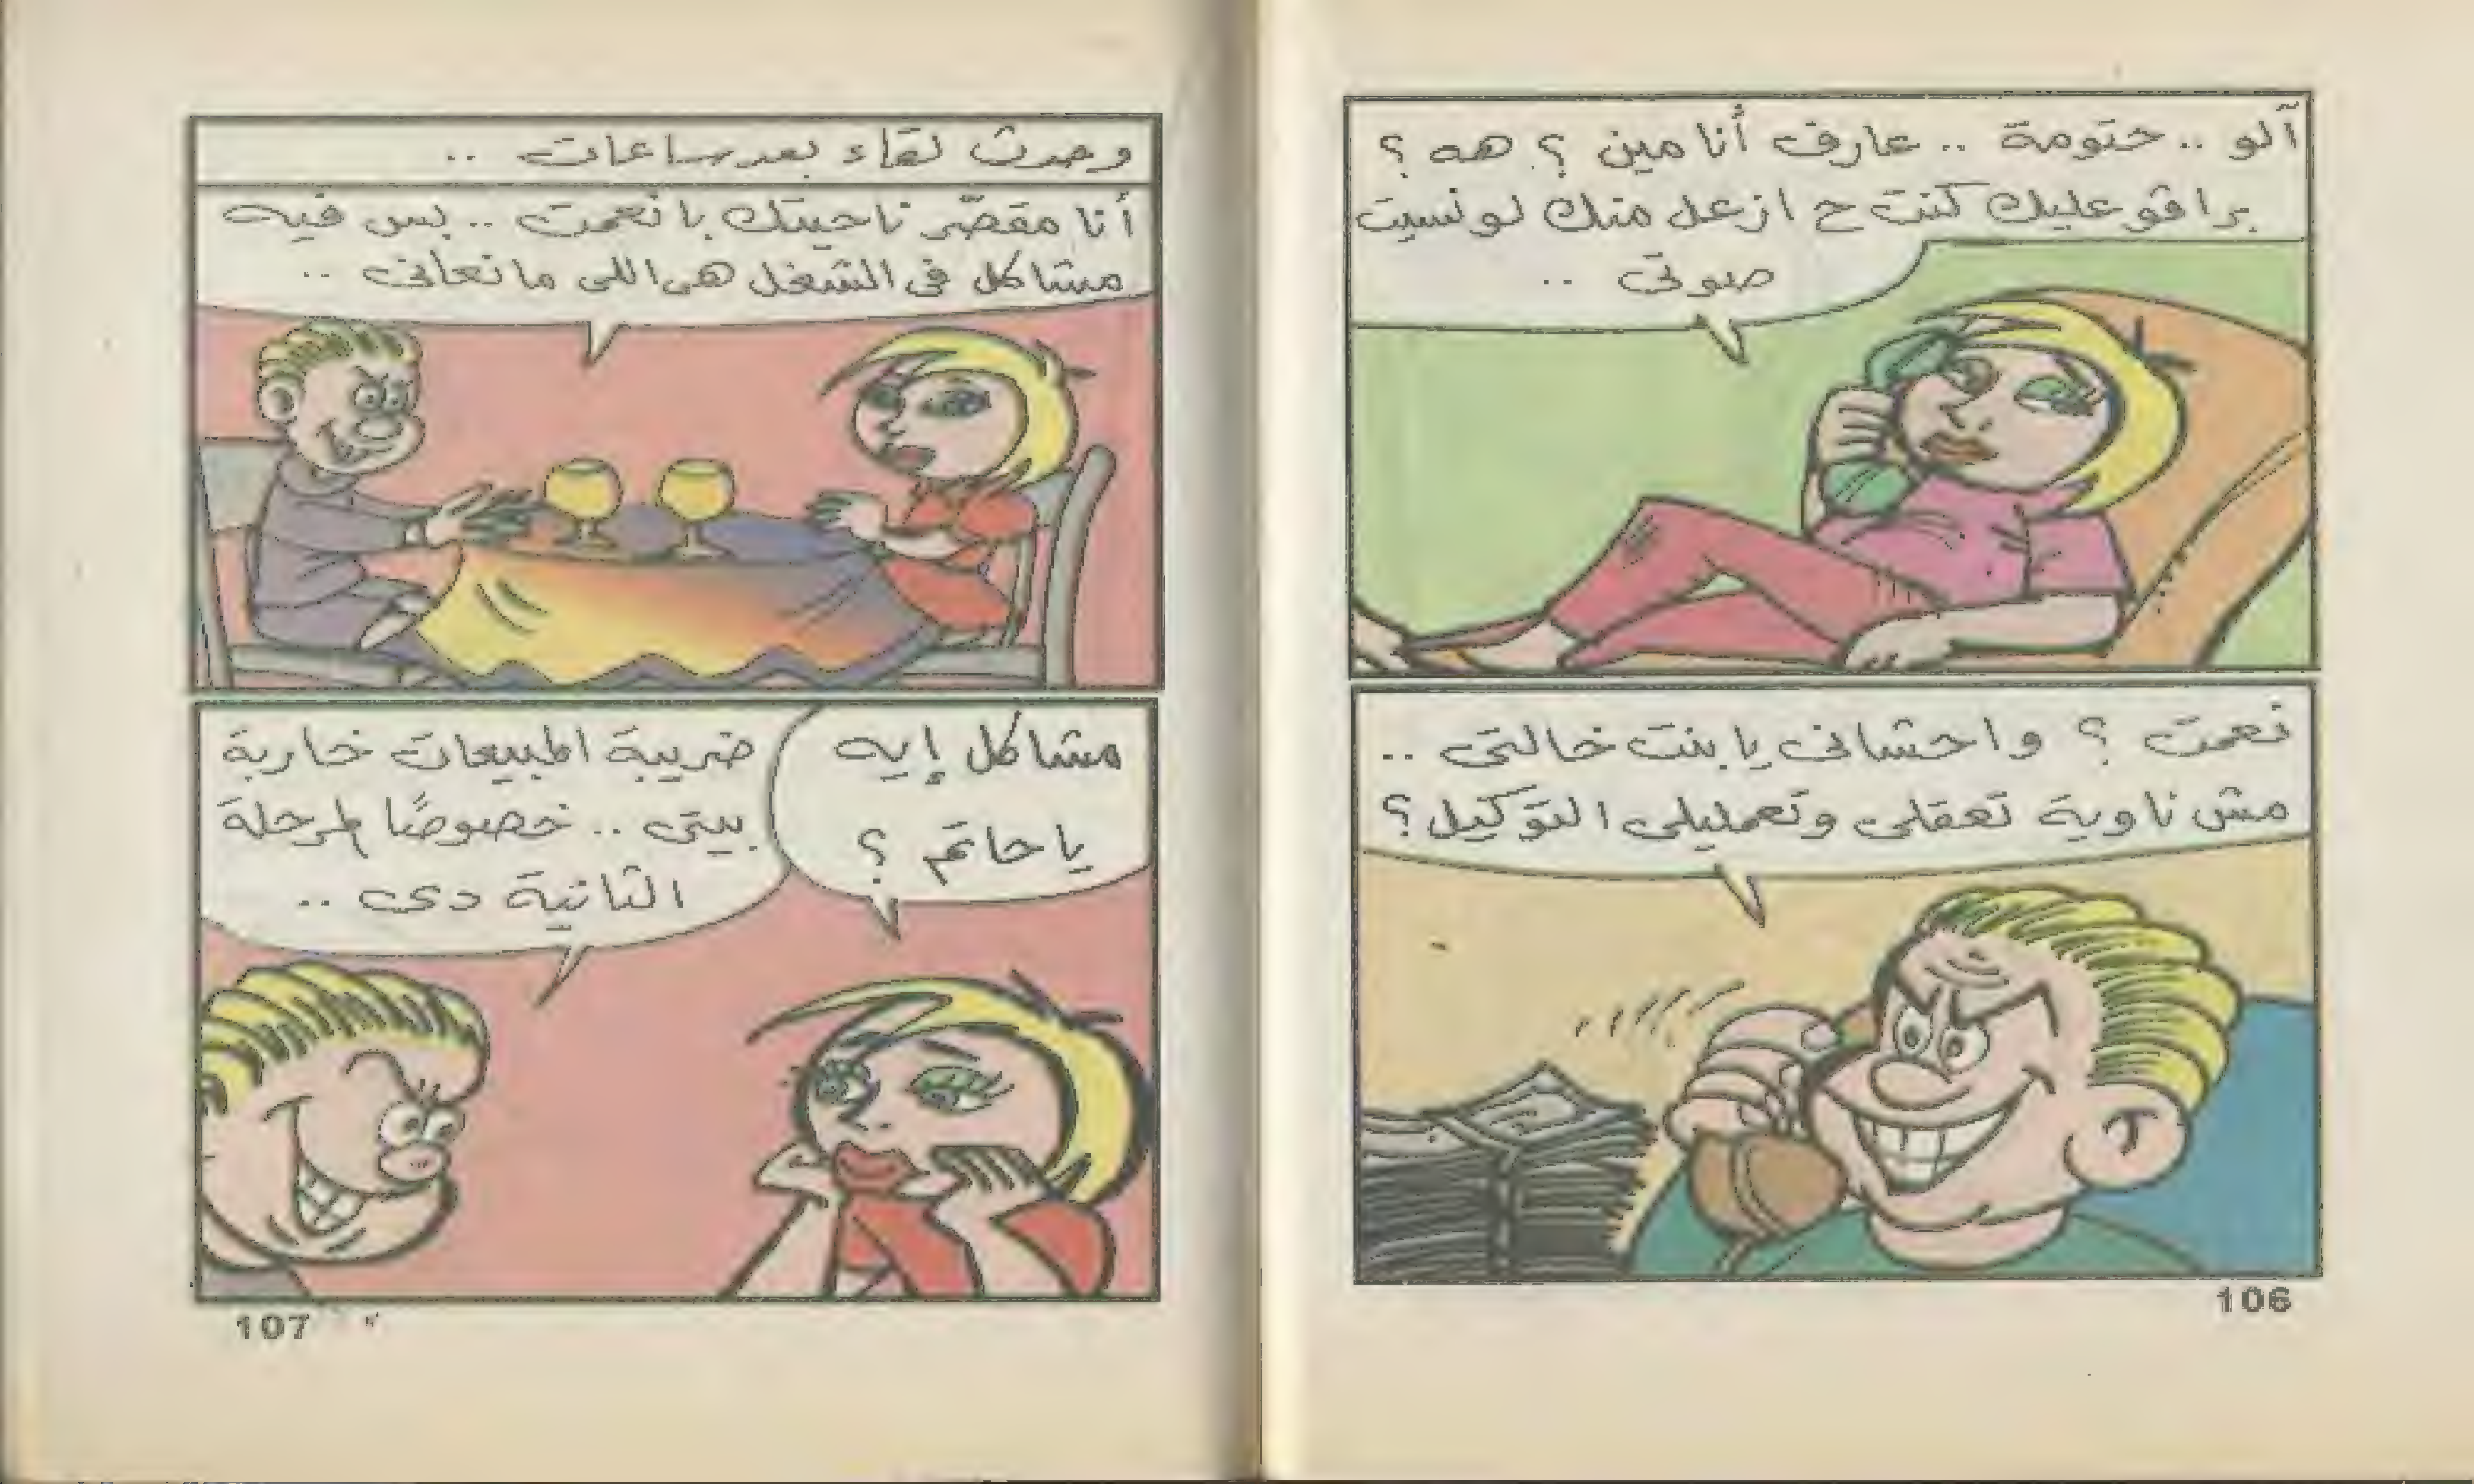 آلو .. حتومة .. عارف أنا مين ؟ هه ؟
برافو عليك كنت ح ازعل منك لو نسيت
صوتى ..
نعمت ؟ واحشانى يا بنت خالتى ..
مش ناوية تعقلى وتعمليلى التوكيل ؟
106
وحدث لقاء بعد ساعات ..
أنا مقصّر ناحيتك يا نعمت .. بس فيه
مشاكل فى الشغل هى اللى مانعانى ..
مشاكل إيه
يا حاتم ؟
ضريبة المبيعات خاربة
بيتى .. خصوصًا المرحلة
الثانية دى ..
107